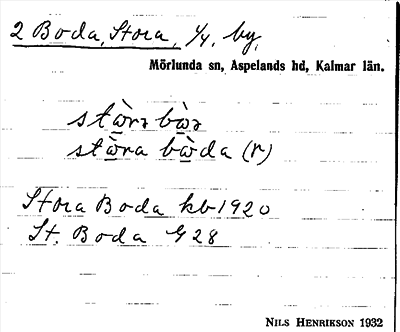 2 Boda, Stora, 1/4, by,
Mörlunda sn, Aspelands hd, Kalmar län.
(r)
Stora Boda kb 1920
St. Boda G 28
NILS HENRIKSON 1932